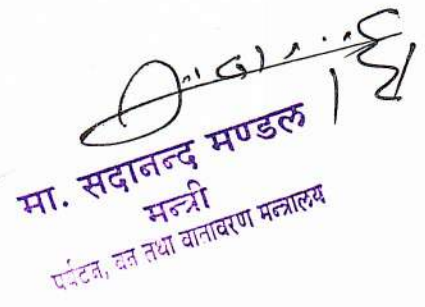 मा. सदानन्द मण्डल
मन्त्री
पर्यटन, वन तथा वातावरण मन्त्रालय